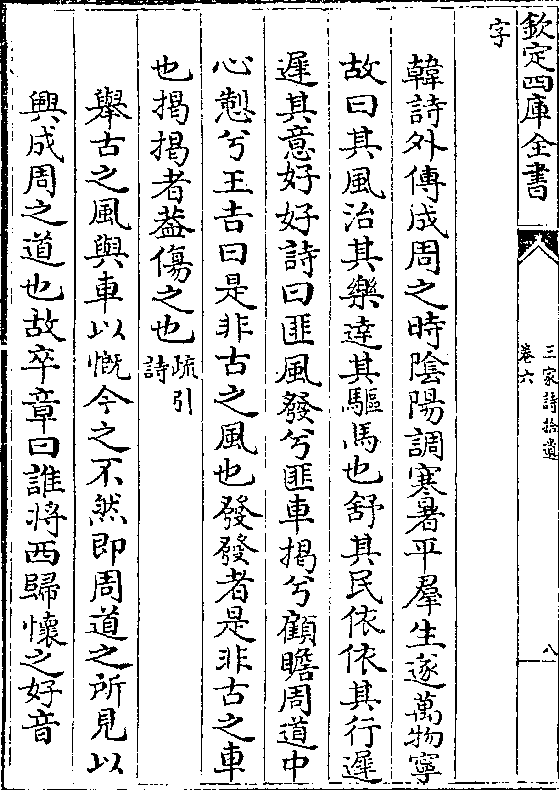 欽定四庫全書
三家詩拾遺
卷六
八
字
韓詩外傳成周之時陰陽調寒暑平羣生遂萬物寧
故曰其風治其樂達其驅馬也舒其民依依其行遲
遲其意好好詩曰匪風發兮匪車揭兮顧瞻周道中
心㣼兮王吉曰是非古之風也發發者是非古之車
也揭揭者葢傷之也疏引
詩
舉古之風與車以慨今之不然即周道之所見以
興成周之道也故卒章曰誰将西歸懷之好音